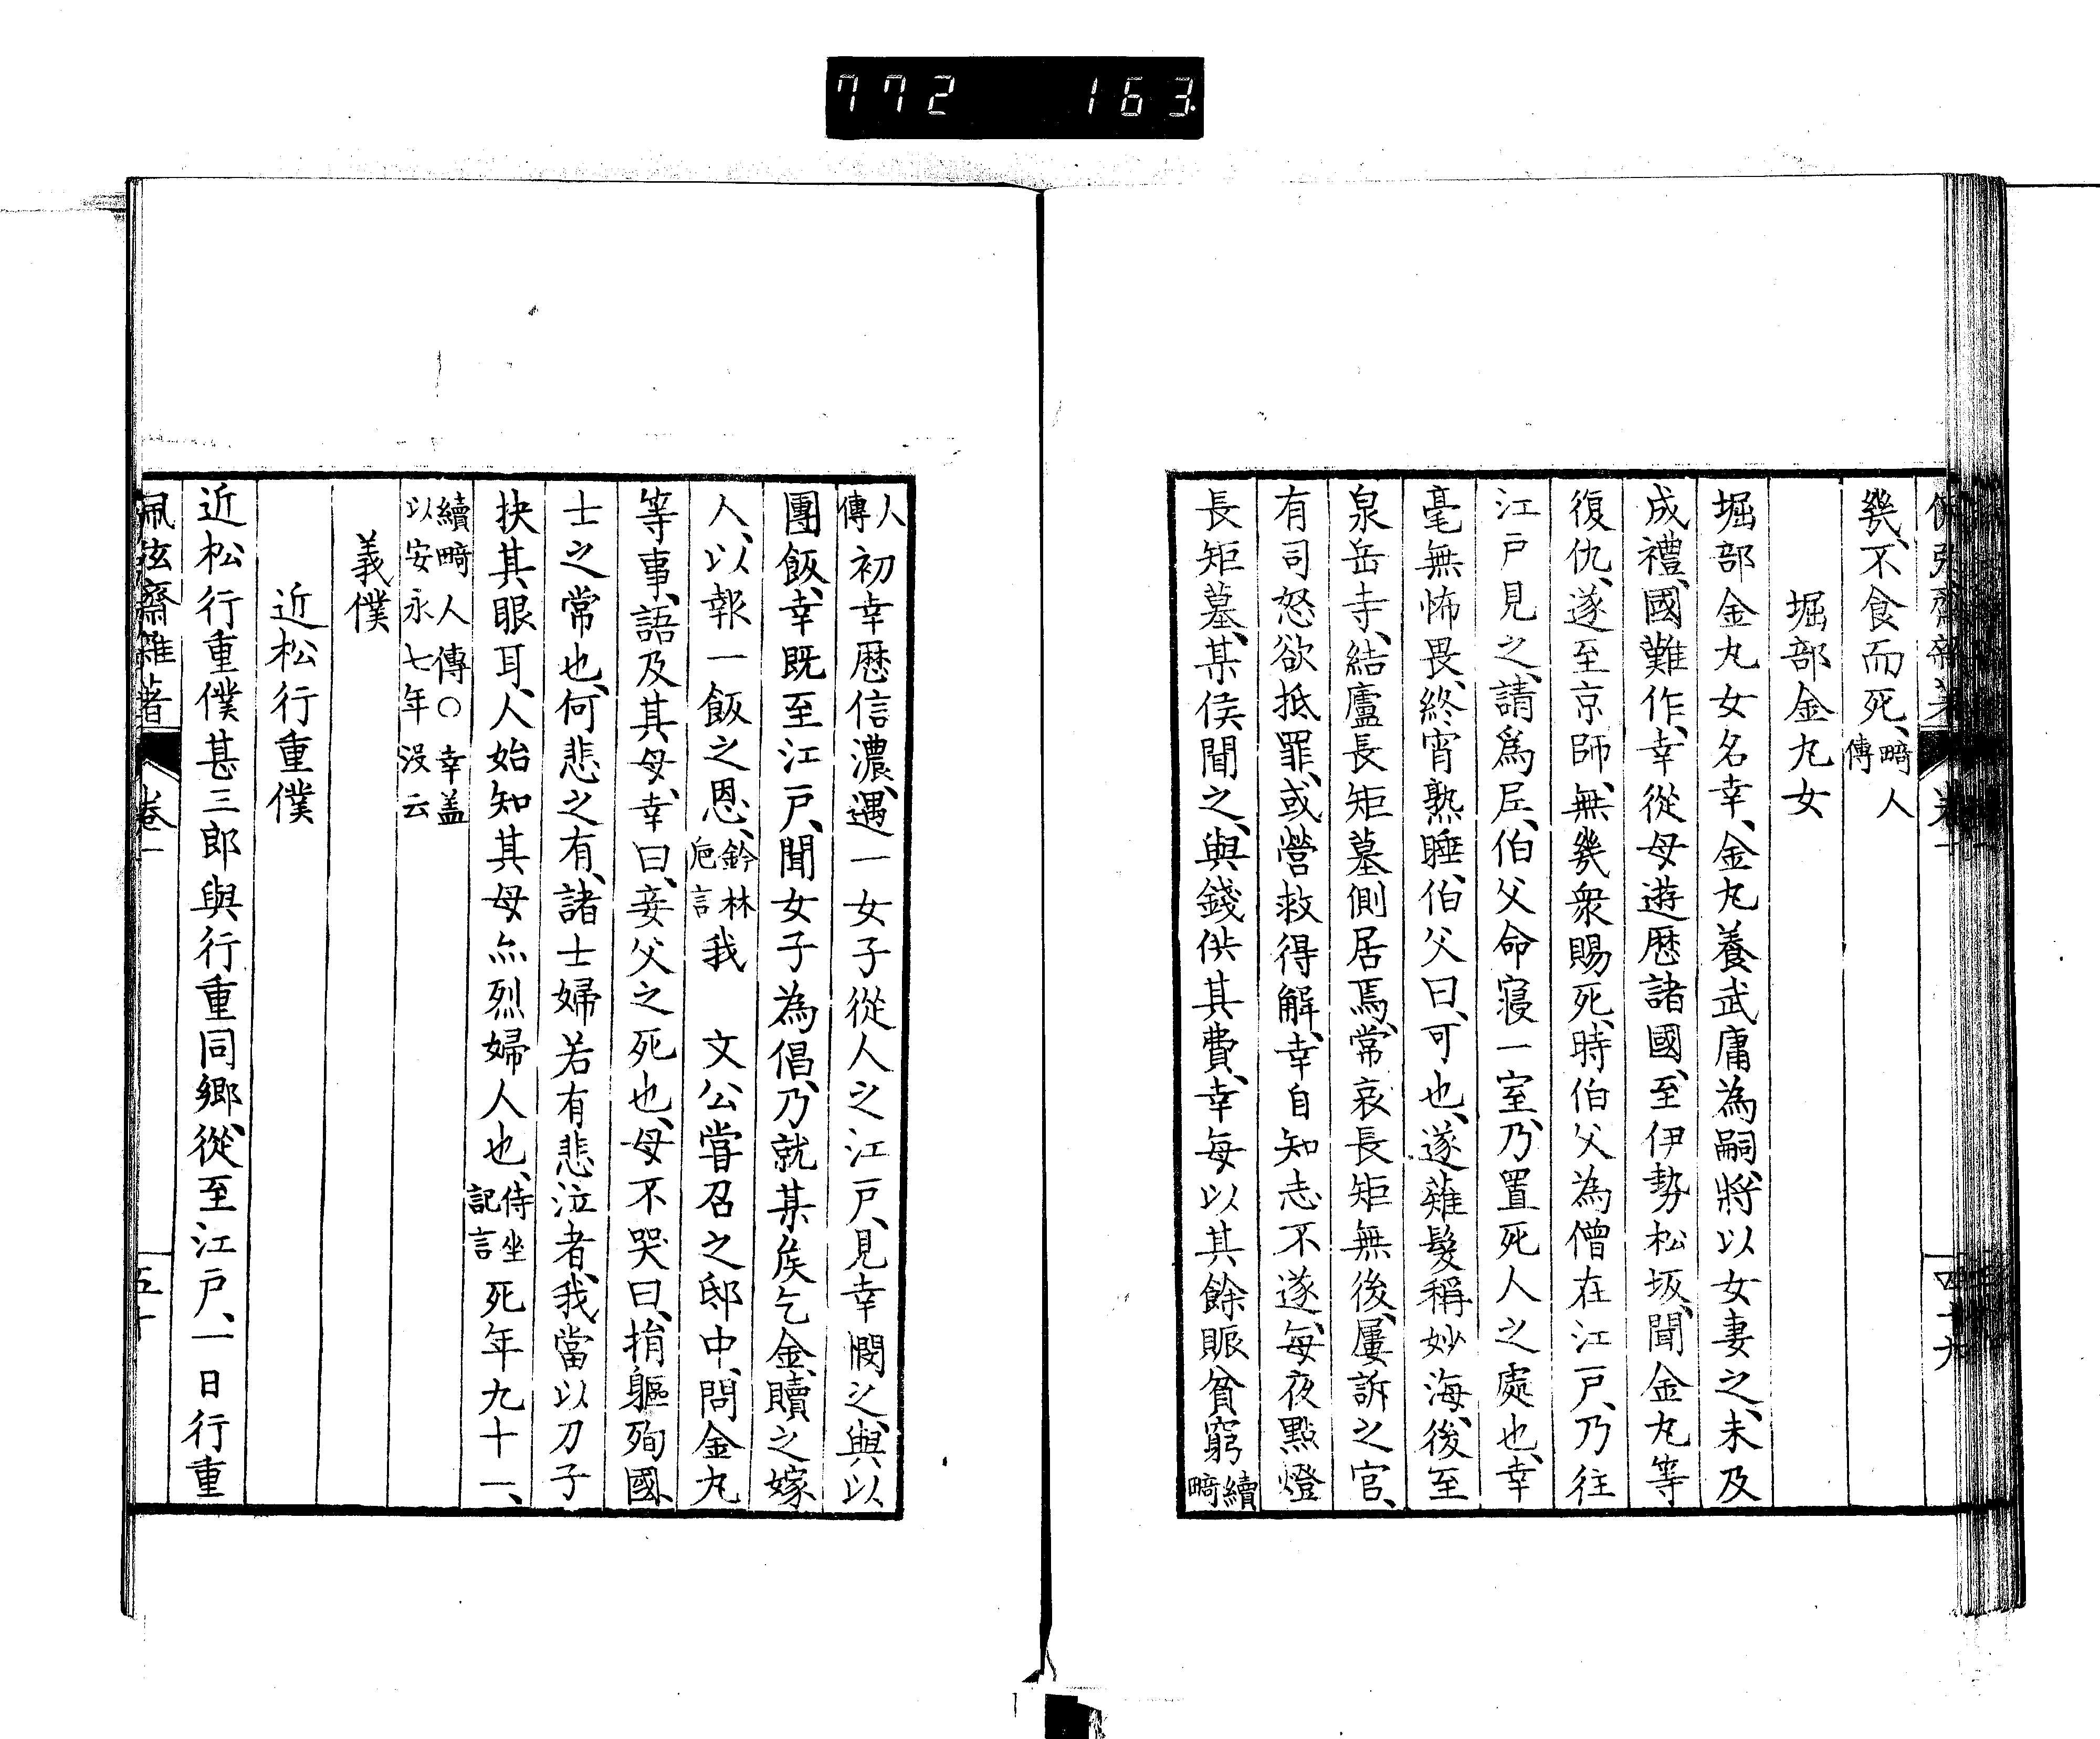 772 163
幾、不食而死、畸人傳
堀部金丸女
堀部金丸女名幸、金丸養武庸為嗣、將以女妻之、未及
成禮、國難作、幸從母遊歷諸國、至伊勢松坂、聞金丸等
復仇、遂至京師、無幾衆賜死、時伯父為僧在江戸、乃往
江戸見之、請爲尼、伯父命寢一室、乃置死人之處也、幸
毫無怖畏、終宵熟睡、伯父曰、可也、遂薙髮稱妙海、後至
泉岳寺、結廬長矩墓側居焉、常哀長矩無後、屢訴之官、
有司怒欲抵罪、或營救得解、幸自知志不遂、每夜點燈
長矩墓、某侯聞之、與錢供其費、幸每以其餘賑貧窮續畸
人傳初幸歷信濃、遇一女子從人之江戸、見幸憫之、與以
團飯、幸既至江戸、聞女子為倡、乃就某矦乞金、贖之嫁
人、以報一飯之恩、鈴林巵言我 文公嘗召之邸中、問金丸
等事、語及其母、幸曰、妾父之死也、母不哭曰、捐軀殉國、
士之常也、何悲之有、諸士婦若有悲泣者、我當以刀子
抉其眼耳、人始知其母亦烈婦人也、侍坐記言死年九十一、
續畸人傳○幸盖以安永七年沒云
義僕
近松行重僕
近松行重僕甚三郎與行重同鄉、從至江戸、一日行重
佩弦齋雜著 卷一 五十